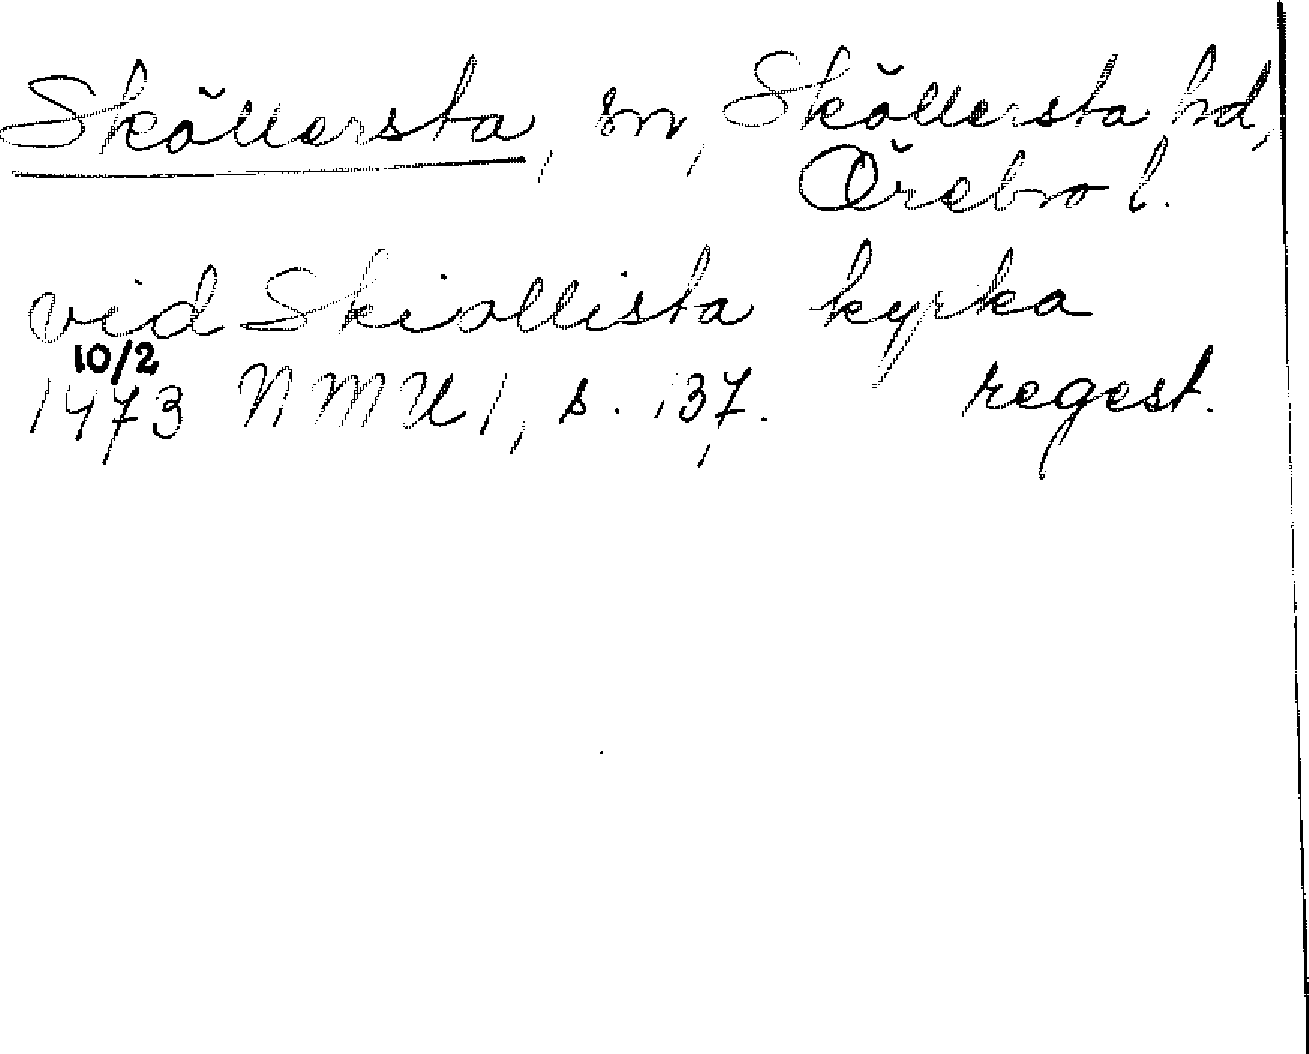 Sköllersta, sn, Sköllersta hd,
Örebro l.
vid Skiollista kyrka
10/2
1473 NMU 1, s. 137. regest.